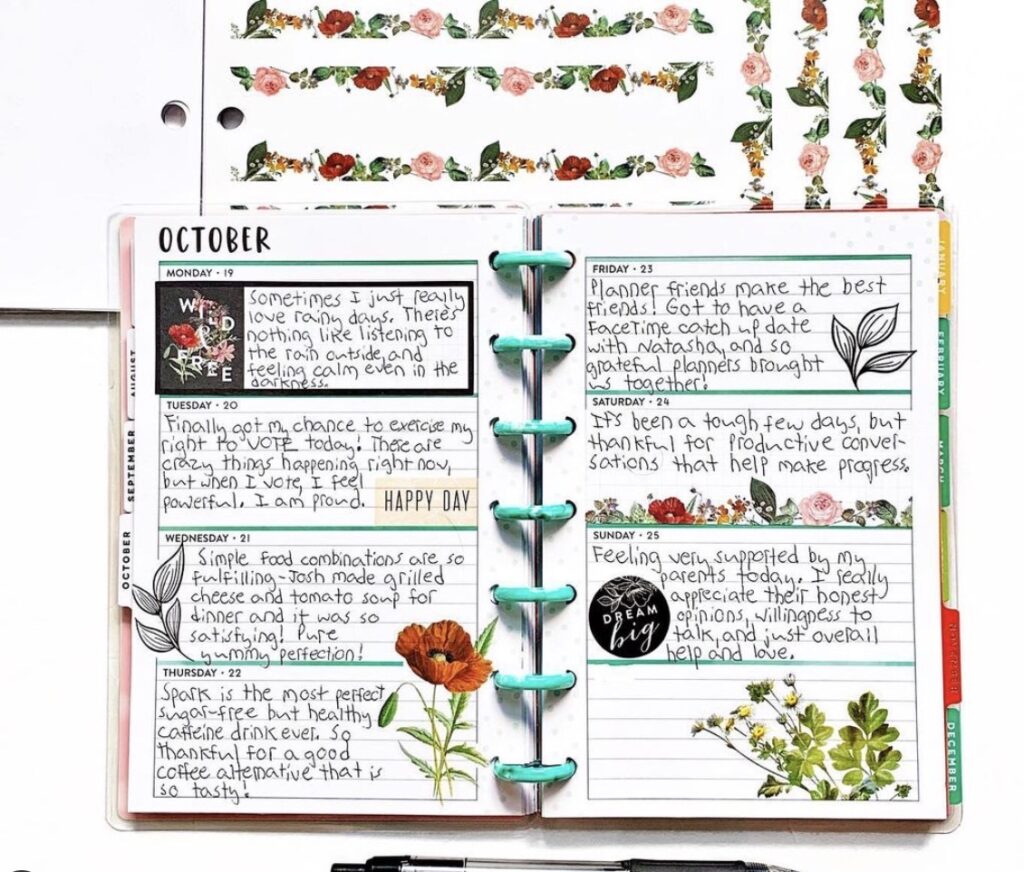 OCTOBER
MONDAY • 19
WILD
&
FREE
Sometimes I just really
love rainy days. There's
nothing like listening to
the rain outside, and
feeling calm even in the
darkness.
TUESDAY • 20
Finally got my chance to exercise my
right to VOTE today! There are
crazy things happening right now,
but when I vote, I feel
powerful. I am proud.
HAPPY DAY
WEDNESDAY • 21
Simple food combinations are so
fulfilling-Josh made grilled
cheese and tomato soup for
dinner and it was so
satisfying! Pure
yummy perfection!
THURSDAY • 22
Spark is the most perfect
sugar-free but healthy
caffeine drink ever. So
thankful for a good
coffee alternative that is
so tasty!
FRIDAY • 23
Planner friends make the best
friends! Got to have a
FaceTime catch up date
with Natasha, and so
grateful planners brought
us together!
SATURDAY • 24
It's been a tough few days, but
thankful for productive conver-
sations that help make progress.
SUNDAY • 25
Feeling very supported by my
parents today. I really
appreciate their honest
opinions, willingness to
talk, and just overall
help and love.
DREAM
big
AUGUST
SEPTEMBER
OCTOBER
JANUARY
FEBRUARY
MARCH
NOVEMBER
DECEMBER